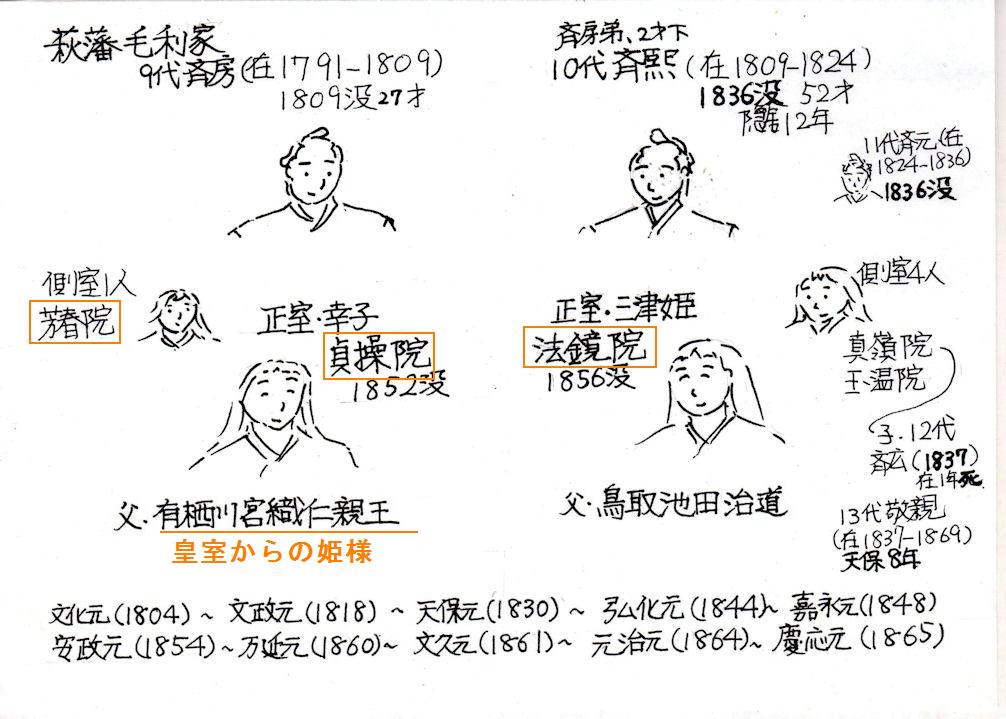 萩藩毛利家
9代斉房(在1791-1809)
1809没27才
斉房弟、2才下
10代斉熙(在1809-1824)
1836没 52才
隠居12年
11代斉元(在
1824-1836)
1836没
側室1人
芳春院
正室・幸子
貞操院
1852没
父・有栖川宮織仁親王
皇室からの姫様
正室・三津姫
法鏡院
1856没
父・鳥取池田治道
側室4人
真嶺院
玉温院
子・12代
斉広(1837)
在1年死
13代敬親
(在1837-1869)
天保8年
文化元(1804)~文政元(1818)~天保元(1830)~弘化元(1844)~嘉永元(1848)
安政元(1854)~万延元(1860)~文久元(1861)~元治元(1864)~慶応元(1865)